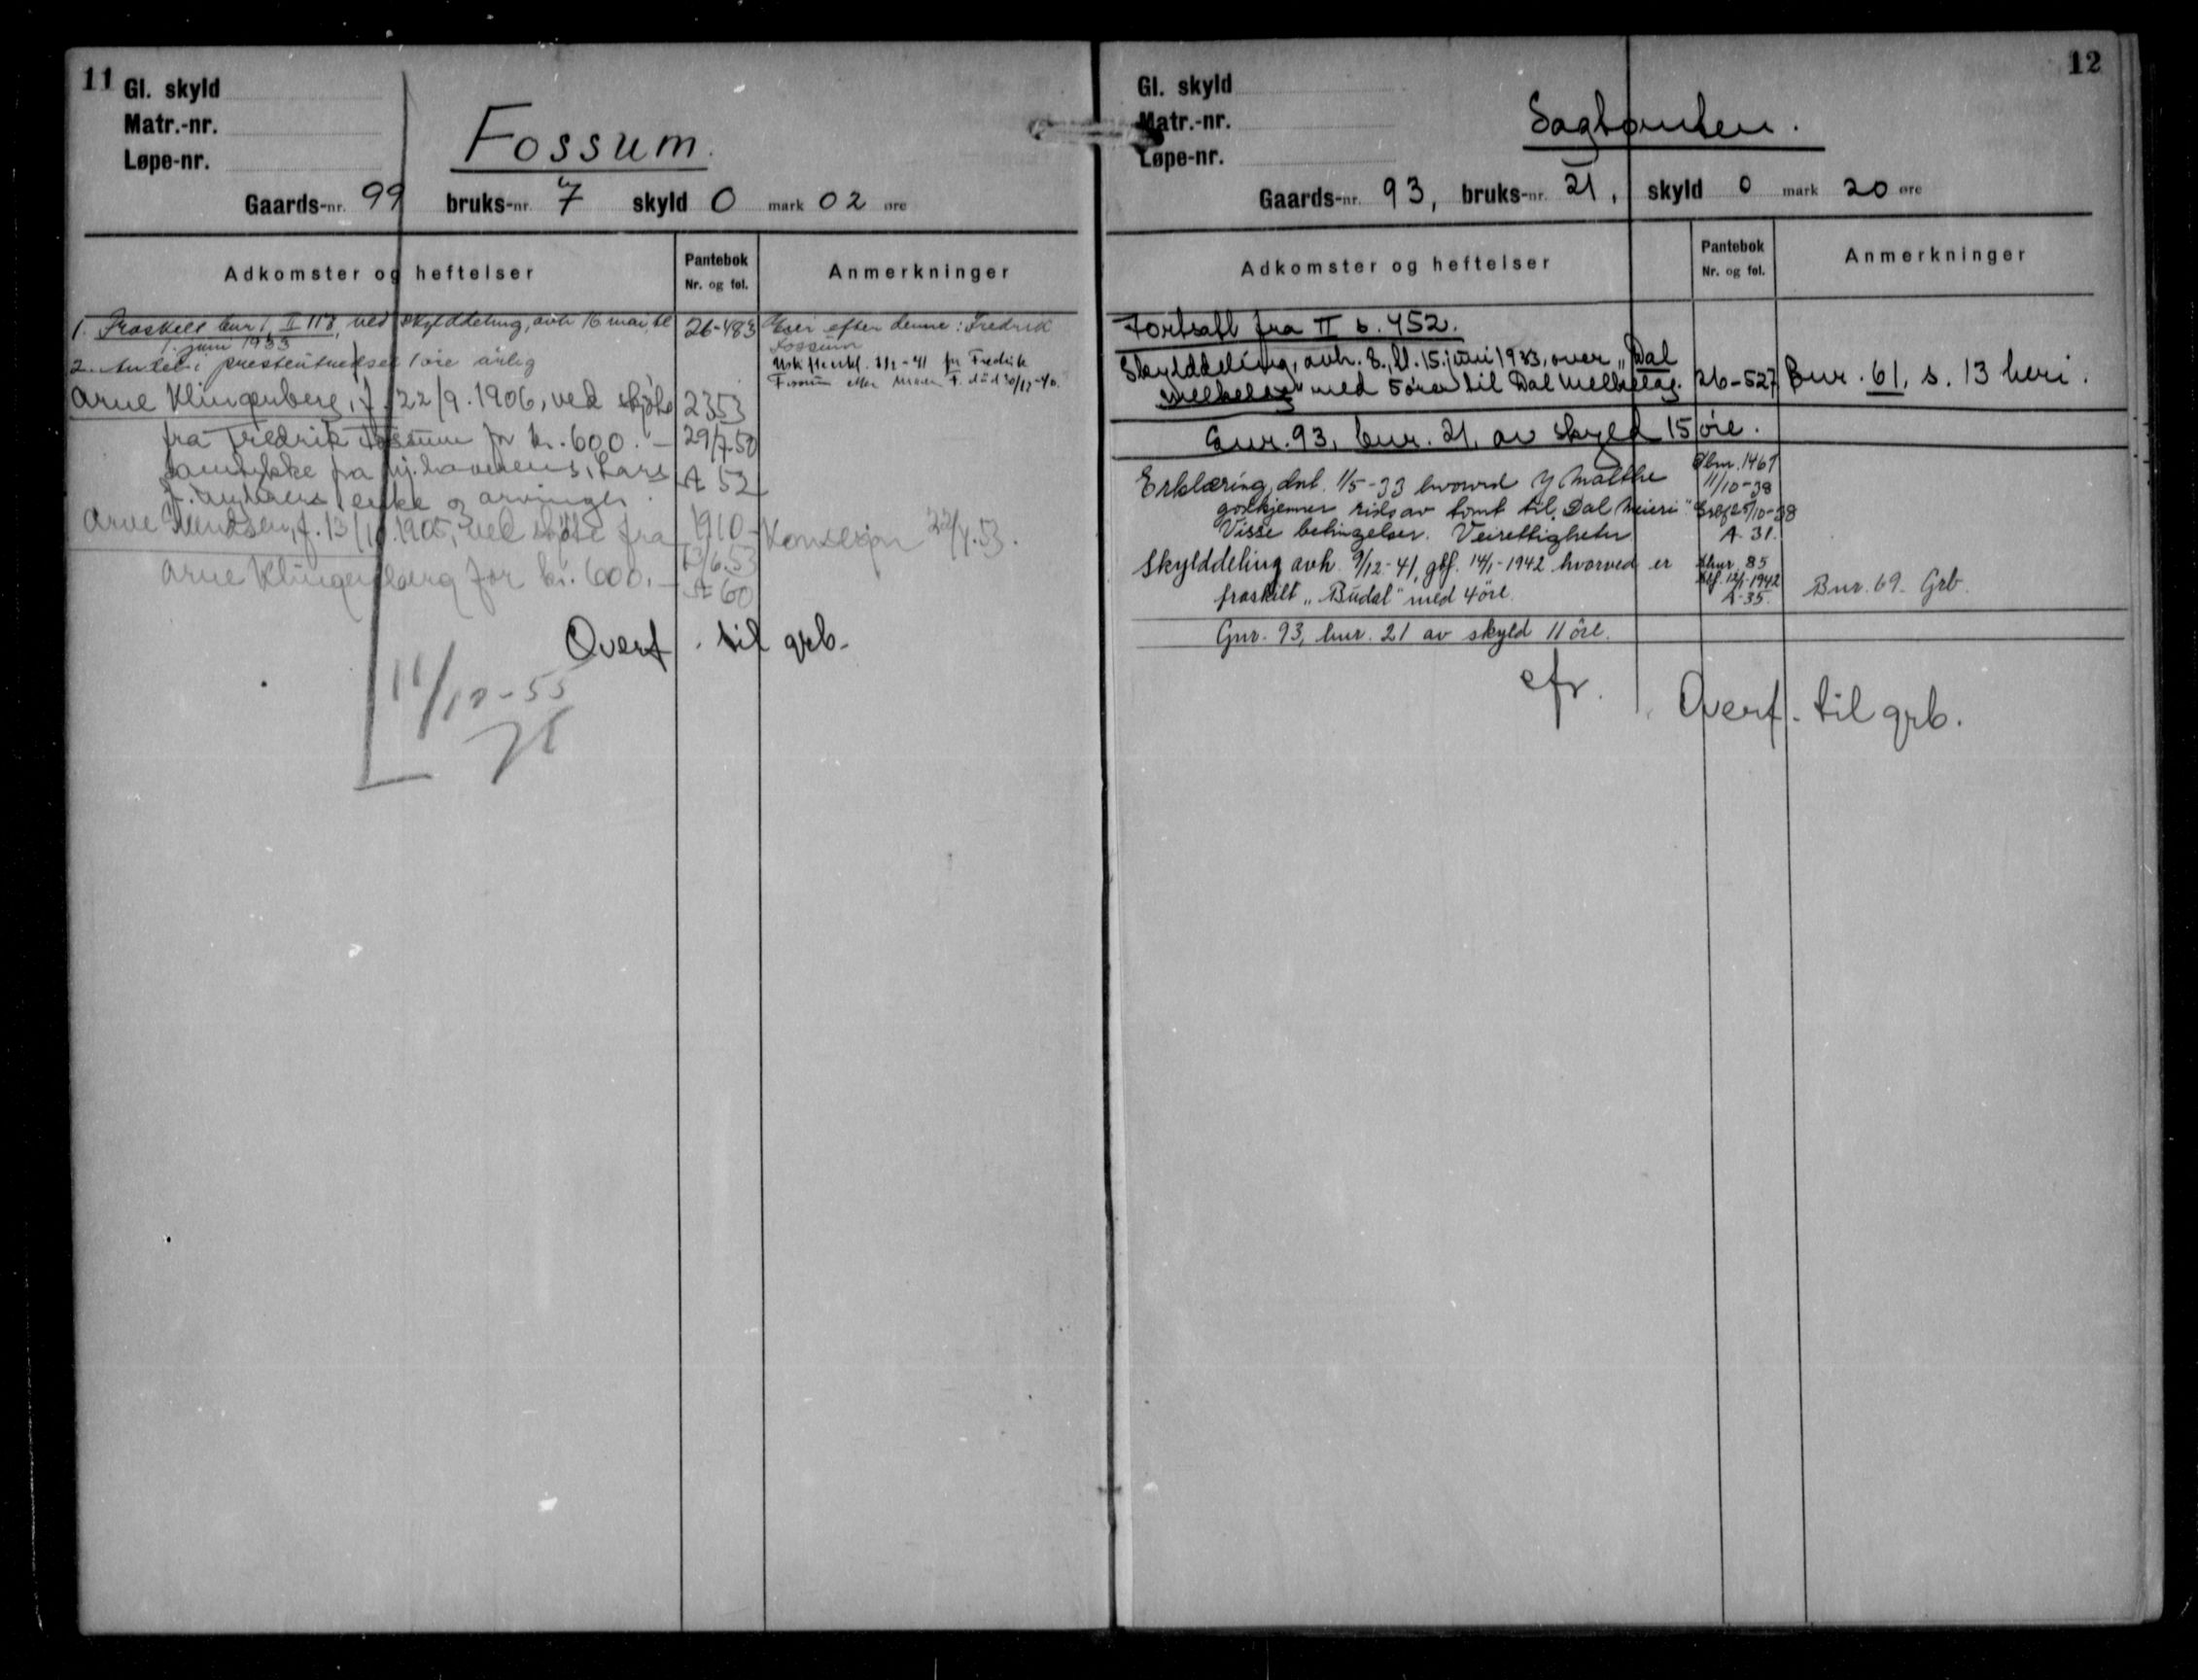 11
Gl. skyld
Matr.-nr.
Løpe-nr.
Fossum.
Gaards-nr. 99 bruks-nr. 7 skyld 0 mark 02 øre
Adkomster og heftelser
Pantebok
Nr. og fol.
Anmerkninger
1. Fraskilt bnr 1, II 118, ved skylddeling, avh 16 mai, tl
1. juni 1933
26-483
Eier efter denne: Fredrik
Fossum
2. Andel i presteutredsel 1 øre årlig
Fredrik
Fossum eller død 30/12-40.
Arne Klingenberg, f. 22/9.1906, ved skjøte
fra Fredrik Fossum for kr. 600.-
samtykke fra lars
enke og arvinger.
2353
29/7-50
A 52
Arne Knudsen, f. 13/ 1905, ved skjøte fra
Arne Klingenberg for kr. 600.-
1910-
13/6.53
A 60
Konsesjon 22/4.53.
Overf. til grb.
11/10-55
12
Gl. skyld
Matr.-nr.
Løpe-nr.
Sagtomten.
Gaards-nr. 93, bruks-nr. 21, skyld 0 mark 20 øre
Adkomster og heftelser
Pantebok
Nr. og fol.
Anmerkninger
Fortsatt fra II s. 452.
Skylddeling, avh. 8., tl. 15. juni 1933, over "Dal
Melkelag" med 5 øre til Dal Melkelag.
26-527
Bnr. 61, s. 13 heri.
Gnr. 93, bnr. 21, av skyld 15 øre.
Erklæring, dat. 1/5-33 hvorved Malthe
godkjenner salg av tomt til "Dal Meieri"
Visse betingelser. Veirettigheter
Dbnr. 1461
11/10-38
25/10-38
A. 31.
Skylddeling avh. 9/12-41, glf. 14/1-1942 hvorved er
fraskilt "Budal" med 4 öre.
85
12/1-1942
A-35.
Bnr. 69. Grb.
Gnr. 93, bnr. 21 av skyld 11 öre.
cfr.
Overf. til grb.